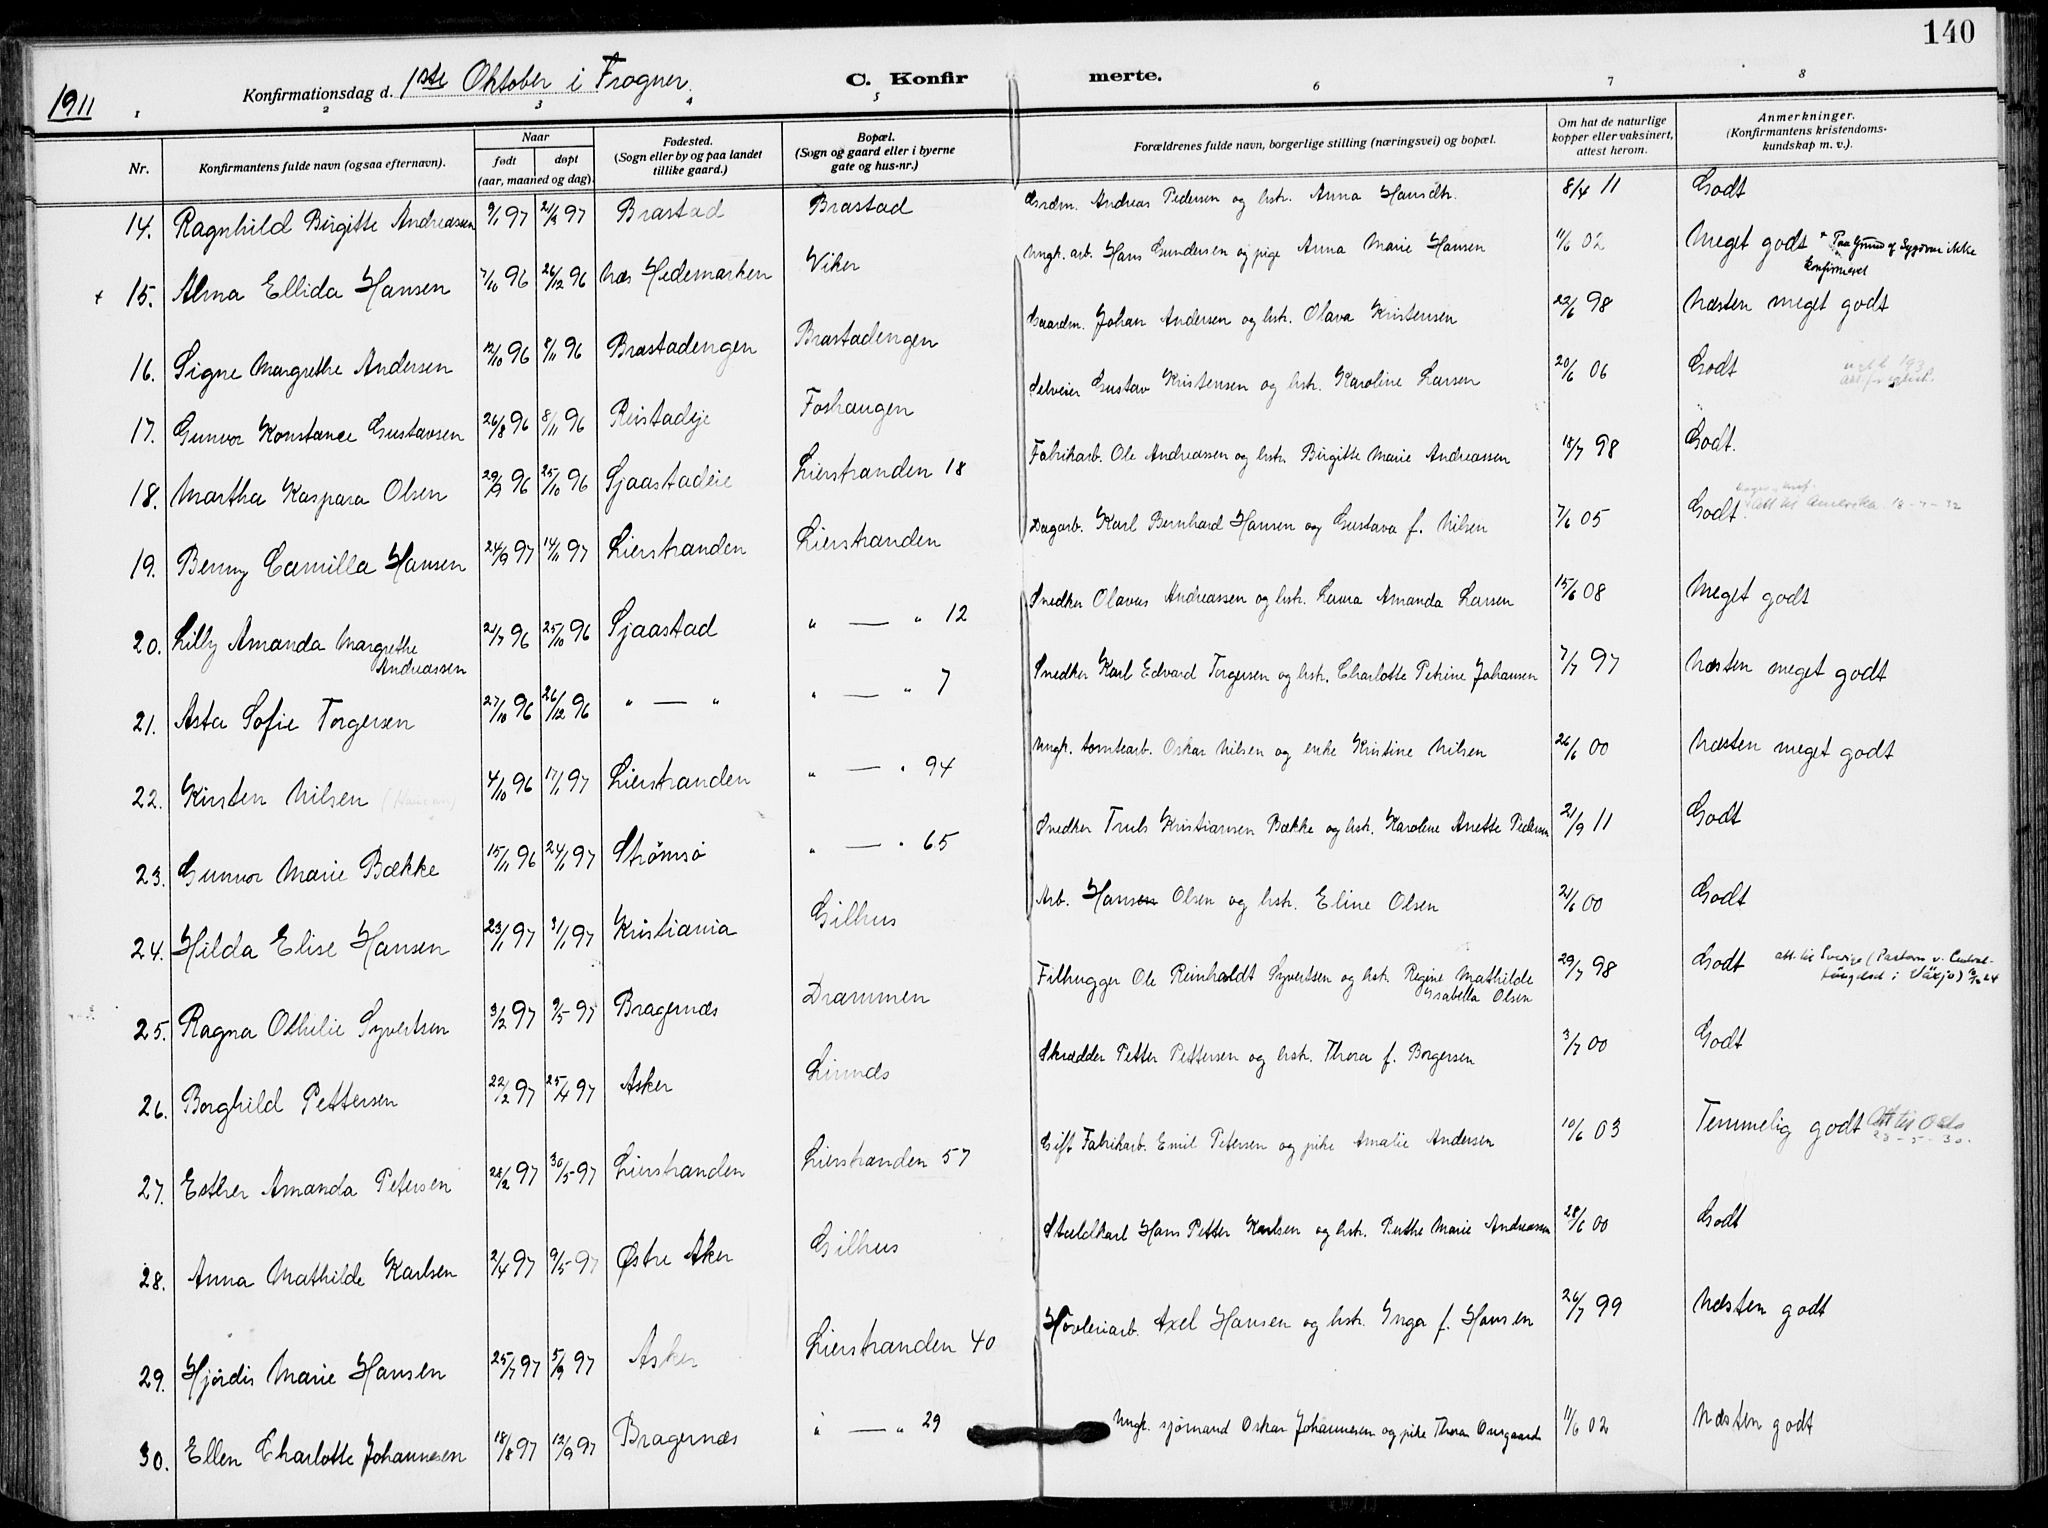 140
1911 Konfirmationsdag d. 1ste Oktober i Frogner. C. Konfir merte.
1 2 3 4 5 6 7 8
Nr. Konfirmantens fulde navn (ogsaa efternavn). Naar født døpt (aar, maaned og dag). Fødested. (Sogn eller by og paa landet tillike gaard.) Bopæl. (Sogn og gaard eller i byerne gate og hus-nr.) Forældrenes fulde navn, borgerlige stilling (næringsvei) og bopæl. Om hat de naturlige kopper eller vaksinert, attest herom. Anmerkninger. (Konfirmantens kristendoms-kundskap m. v.).
14. Ragnhild Birgitte Andreassen 9/1 97 21/3 97 Brastad Brastad Grdm. Andreas Pedersen og hstr. Anna Hansdtr. 8/4 11 Godt
+ 15. Alma Ellida Hansen 7/10 96 26/12 96 Næs Hedemarken Viker Ungk. arb. Hans Gundersen og pige Anna Marie Hansen 11/6 02 Meget godt + Paa Grund af Sygdom ikke
konfirmeret
16. Signe Margrethe Andersen 12/10 96 8/11 96 Brastadengen Brastadengen Gaardm. Johan Andersen og hstr. Olava Kristensen 22/6 98 Næsten meget godt
17. Gunvor Konstance Gustavsen 26/8 96 8/11 96 Reistadeje Foshaugen Selveier Gustav Kristensen og hstr. Karoline Larsen 20/6 06 Godt
18. Martha Kaspara Olsen 29/9 96 25/10 96 Sjaastadeie Lierstranden 18 Fabrikarb. Ole Andreassen og hstr. Birgitte Marie Andreassen 18/7 98 Godt.
19. Benny Camilla Hansen 24/9 97 14/11 97 Lierstranden Lierstranden Dagarb. Karl Bernhard Hansen og Gustava f. Nilsen 7/6 05 Godt. Att til Amerika
20. Lilly Amanda Margrethe 21/7 96 25/10 96 Sjaastad " — " 12 Snedker Olavus Andreassen og hstr. Laura Amanda Larsen 15/6 08 Meget godt
Andreassen
21. Asta Sofie Torgersen 27/10 96 26/12 96 " — " " — " 7 Snedker Karl Edvard Torgersen og hstr. Charlotte Petrine Johansen 7/7 97 Næsten meget godt
22. Kirsten Nilsen 4/10 96 17/1 97 Lierstranden " — " 94 Ungk. tomtearb. Oskar Nilsen og enke Kristine Nilsen 26/6 00 Næsten meget godt
23. Gunvor Marie Bække 15/11 96 24/1 97 Strømsø " — " 65 Snedker Truls Kristiansen Bække og hstr. Karoline Anette Pedersen 21/9 11 Godt
24. Hilda Elise Hansen 23/1 97 31/1 97 Kristiania Gilhus Arb. Hansen Olsen og hstr. Eline Olsen 21/6 00 Godt
25. Ragna Othilie Syvertsen 3/2 97 9/5 97 Bragernæs Drammen Filhugger Ole Reinholdt Syvertsen og hstr. Regine Mathilde 29/7 98 Godt att. til Sverige (Pastorn v. Central-
Ysabella Olsen fängelset i Växjö)
26. Borghild Pettersen 22/2 97 25/4 97 Asker Linnæs Skrædder Petter Pettersen og hstr. Thora f. Borgersen 3/7 00 Godt
27. Esther Amanda Petersen 28/2 97 30/5 97 Lierstranden Lierstranden 57 Gift Fabrikarb. Emil Petersen og pike Amalie Andersen 10/6 03 Temmelig godt Att til Oslo
23-5-30.
28. Anna Mathilde Karlsen 2/4 97 9/5 97 Østre Aker Gilhus Staldkarl Hans Petter Karlsen og hstr. Berthe Marie Andreassen 28/6 00 Godt
29. Hjørdis Marie Hansen 25/7 97 5/9 97 Asker Lierstranden 40 Høvleriarb. Axel Hansen og hstr. Ynga f. Hansen 26/7 99 Næsten godt
30. Ellen Charlotte Johannesen 18/8 97 12/9 97 Bragernæs " — " 29 Ungk. sjømand Oskar Johannesen og pike Thora Ousgaard 11/6 02 Næsten godt